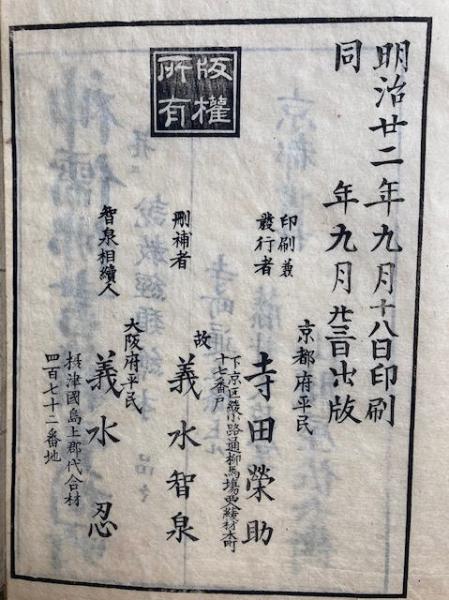 明治廿二年九月十八日印刷
同年九月廿三日出版
版權
所有
京都府平民
印刷兼
發行者
寺田榮助
下京區綾小路通柳馬場
十七番戸
刪補者
故
義水智泉
智泉相續人
大阪府平民
義水忍
摂津國島上郡代合村
四百七十二番地